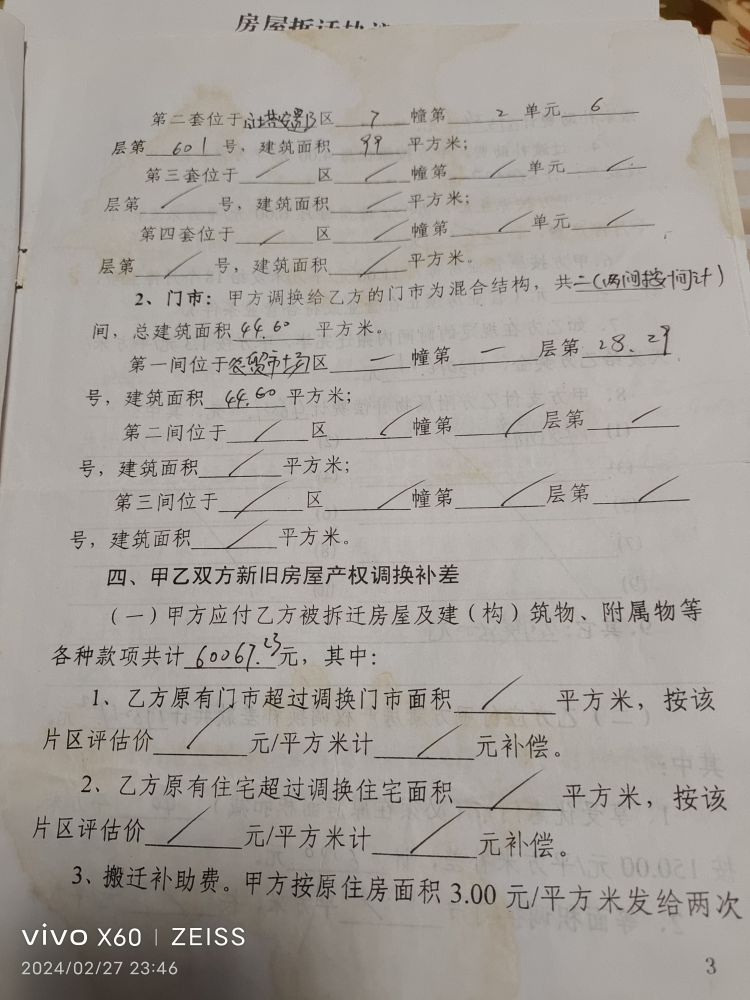 房屋拆迁协议
第二套位于安置区 7 幢第 2 单元 6
层第 601 号，建筑面积 99 平方米；
第三套位于 / 区 / 幢第 / 单元 /
层第 / 号，建筑面积 / 平方米；
第四套位于 / 区 / 幢第 / 单元 /
层第 / 号，建筑面积 / 平方米。
2、门市：甲方调换给乙方的门市为混合结构，共二(两间按一间计)
间，总建筑面积 44.60 平方米。
第一间位于农贸市场区 一 幢第 一 层第 28、29
号，建筑面积 44.60 平方米；
第二间位于 / 区 / 幢第 / 层第 /
号，建筑面积 / 平方米；
第三间位于 / 区 / 幢第 / 层第 /
号，建筑面积 / 平方米。
四、甲乙双方新旧房屋产权调换补差
（一）甲方应付乙方被拆迁房屋及建（构）筑物、附属物等
各种款项共计 60067.23 元，其中：
1、乙方原有门市超过调换门市面积 / 平方米，按该
片区评估价 / 元/平方米计 / 元补偿。
2、乙方原有住宅超过调换住宅面积 / 平方米，按该
片区评估价 / 元/平方米计 / 元补偿。
3、搬迁补助费。甲方按原住房面积 3.00 元/平方米发给两次
vivo X60 | ZEISS
2024/02/27 23:46
3